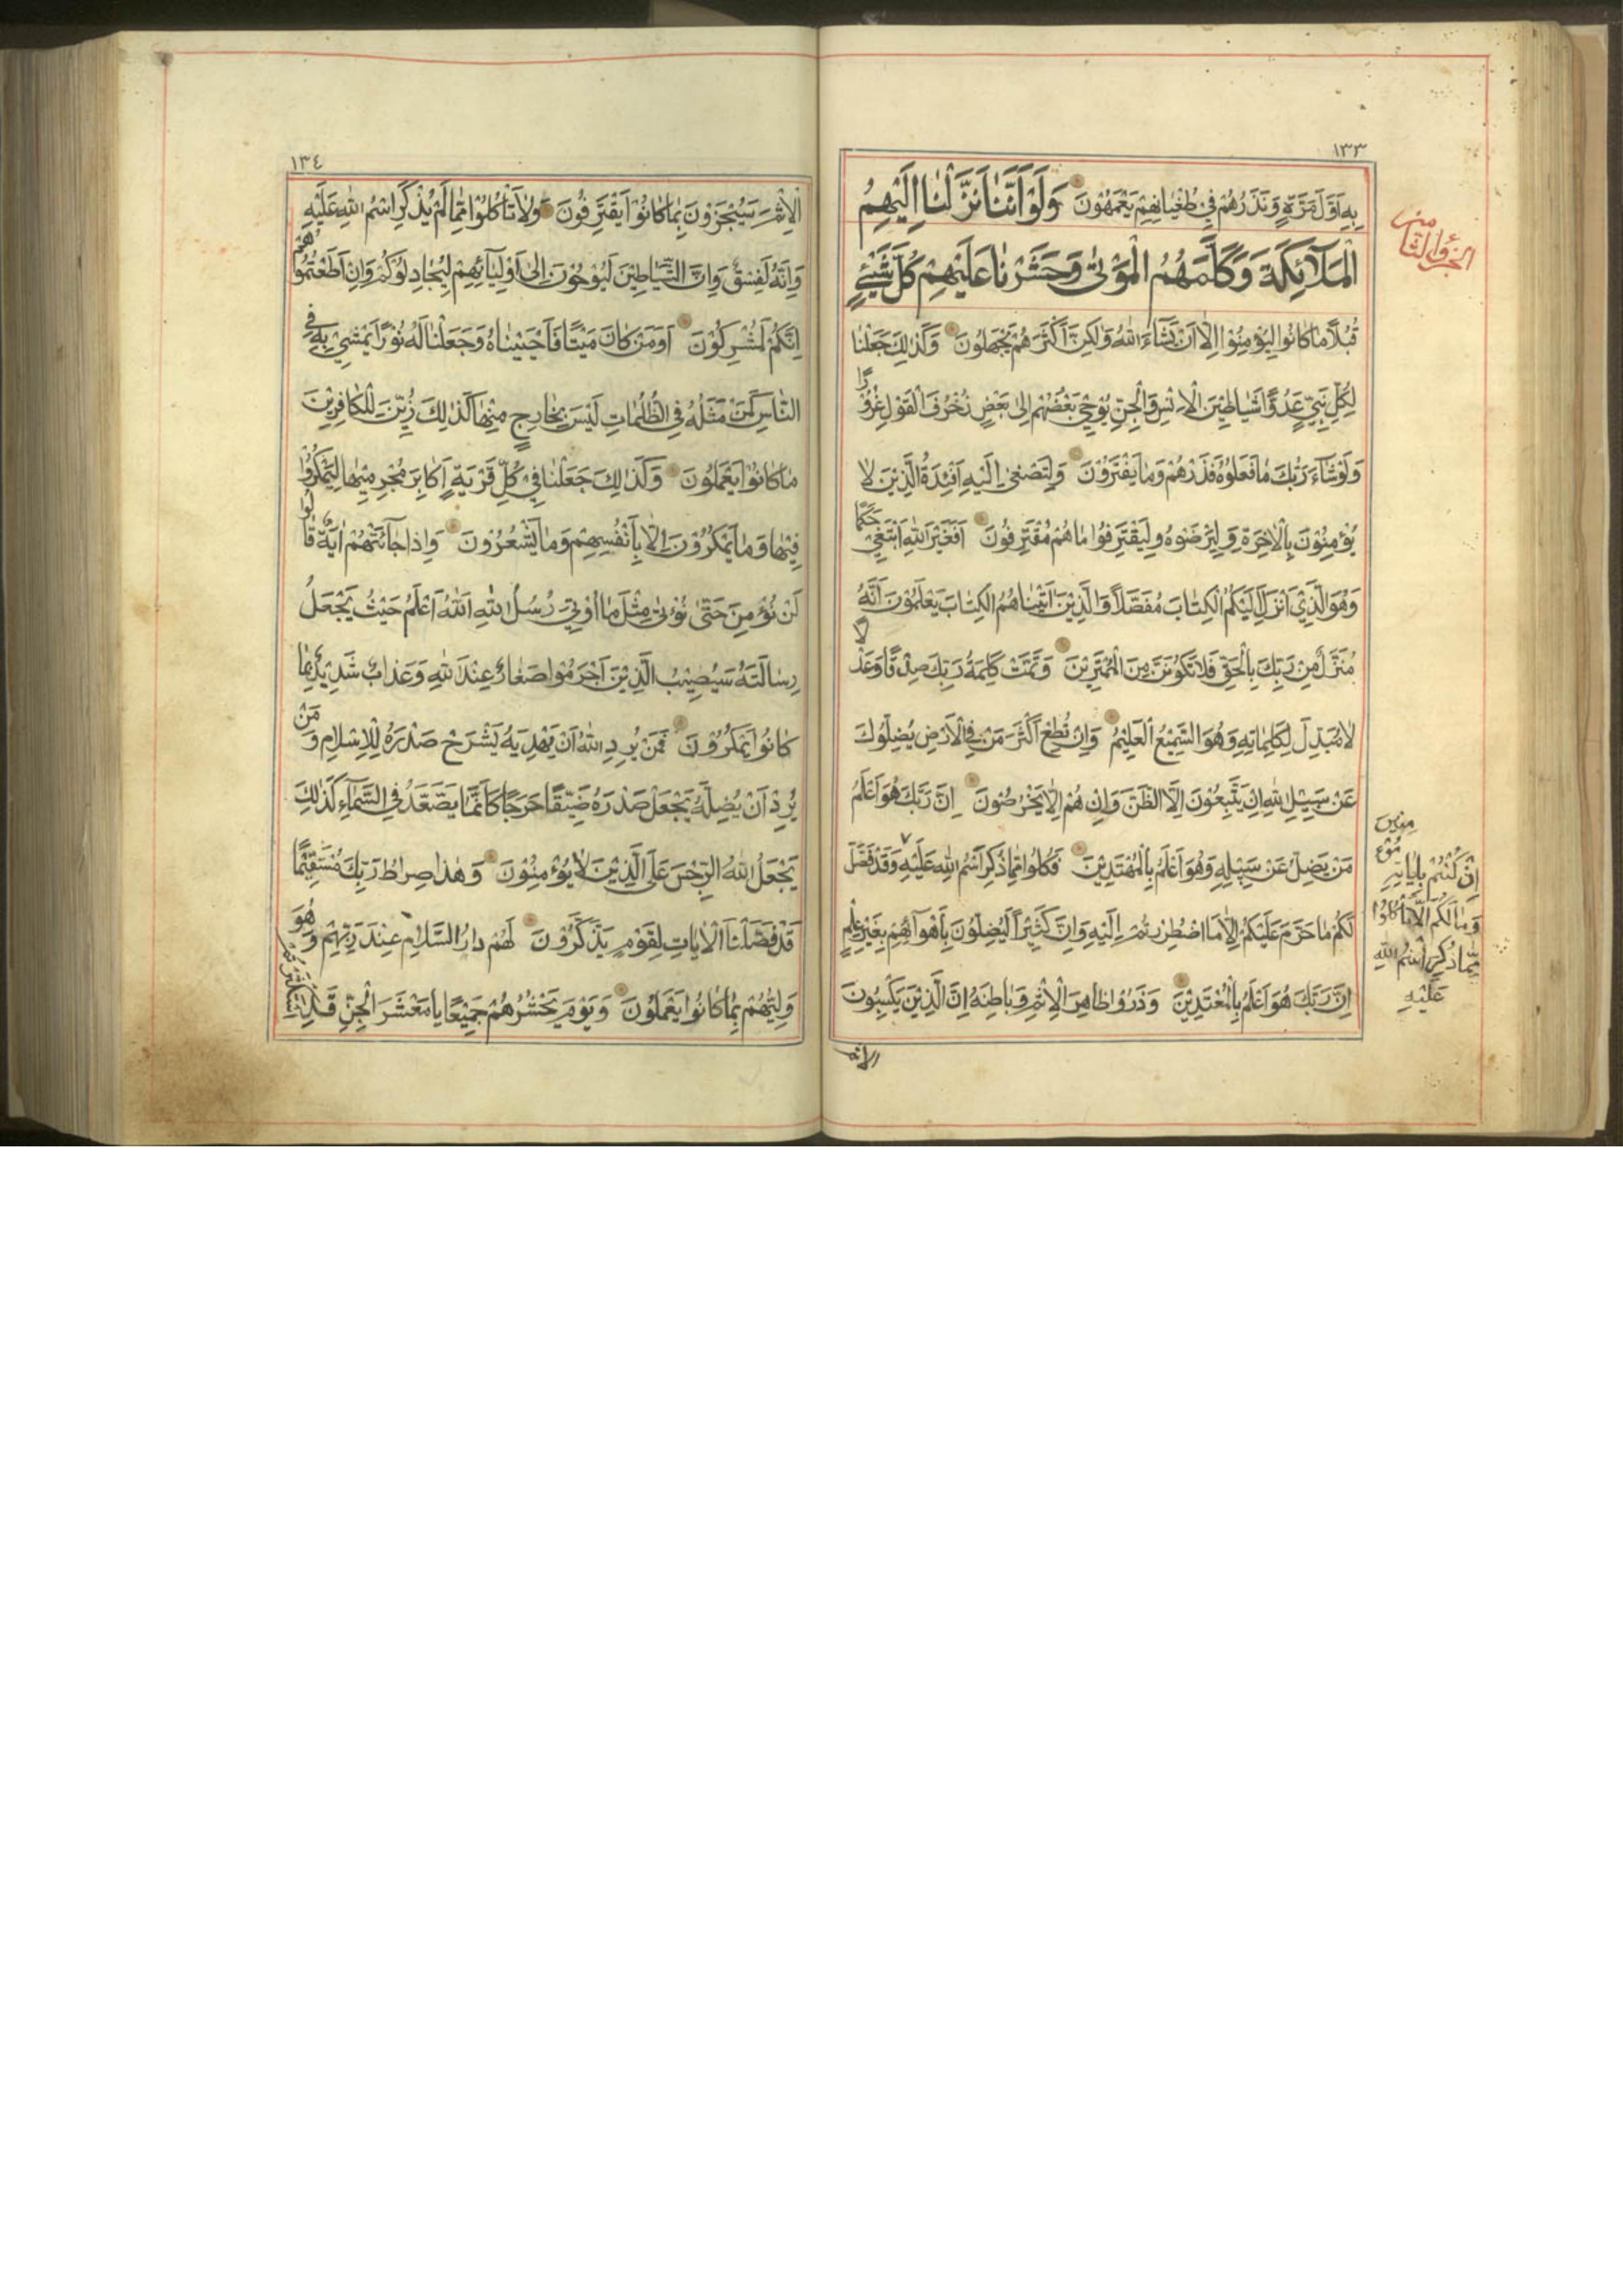 ١٣٣
الجزؤ الثامن
بِهِ اَوَّلَ مَرَّةٍ وَنَذَرُهُمْ فِي طُغْيَانِهِمْ يَعْمَهُونَ وَلَوْ اَنَّنَا نَزَّلْنَا اِلَيْهِمُ
الْمَلَآئِكَةَ وَكَلَّمَهُمُ الْمَوْتٰى وَحَشَرْنَا عَلَيْهِمْ كُلَّ شَيْئٍ
قُبُلًا مَا كَانُوا لِيُؤْمِنُوْا اِلَّا اَنْ يَشَاءَ اللهُ وَلٰكِنَّ اَكْثَرَهُمْ يَجْهَلُونَ وَكَذٰلِكَ جَعَلْنَا
لِكُلِّ نَبِيٍّ عَدُوًّا شَيَاطِيْنَ الْاِنْسِ وَالْجِنِّ يُوْحِيْ بَعْضُهُمْ اِلٰى بَعْضٍ زُخْرُفَ الْقَوْلِ غُرُوْرًا
وَلَوْ شَآءَ رَبُّكَ مَا فَعَلُوْهُ فَذَرْهُمْ وَمَا يَفْتَرُوْنَ وَلِتَصْغٰى اِلَيْهِ اَفْئِدَةُ الَّذِيْنَ لَا
يُؤْمِنُوْنَ بِالْاٰخِرَةِ وَلِيَرْضَوْهُ وَلِيَقْتَرِفُوْا مَا هُمْ مُقْتَرِفُونَ اَفَغَيْرَ اللهِ اَبْتَغِيْ حَكَمًا
وَهُوَ الَّذِيْ اَنْزَلَ اِلَيْكُمُ الْكِتَابَ مُفَصَّلًا وَالَّذِيْنَ اٰتَيْنَاهُمُ الْكِتَابَ يَعْلَمُوْنَ اَنَّهُ
مُنَزَّلٌ مِنْ رَبِّكَ بِالْحَقِّ فَلَا تَكُوْنَنَّ مِنَ الْمُمْتَرِيْنَ وَتَمَّتْ كَلِمَةُ رَبِّكَ صِدْقًا وَعَدْلًا
لَا مُبَدِّلَ لِكَلِمَاتِهِ وَهُوَ السَّمِيْعُ الْعَلِيْمُ وَاِنْ تُطِعْ اَكْثَرَ مَنْ فِي الْاَرْضِ يُضِلُّوْكَ
عَنْ سَبِيْلِ اللهِ اِنْ يَتَّبِعُوْنَ اِلَّا الظَّنَّ وَاِنْ هُمْ اِلَّا يَخْرُصُوْنَ اِنَّ رَبَّكَ هُوَ اَعْلَمُ
مَنْ يَضِلُّ عَنْ سَبِيْلِهِ وَهُوَ اَعْلَمُ بِالْمُهْتَدِيْنَ فَكُلُوْا مِمَّا ذُكِرَ اسْمُ اللهِ عَلَيْهِ وَقَدْ فَصَّلَ
لَكُمْ مَا حَرَّمَ عَلَيْكُمْ اِلَّا مَا اضْطُرِرْتُمْ اِلَيْهِ وَاِنَّ كَثِيْرًا لَيُضِلُّوْنَ بِاَهْوَآئِهِمْ بِغَيْرِ عِلْمٍ
اِنَّ رَبَّكَ هُوَ اَعْلَمُ بِالْمُعْتَدِيْنَ وَذَرُوْا ظَاهِرَ الْاِثْمِ وَبَاطِنَهُ اِنَّ الَّذِيْنَ يَكْسِبُونَ
اِنْ كُنْتُمْ بِاٰيَاتِهِ
مُؤْمِنِيْنَ
وَمَا لَكُمْ اَلَّا تَأْكُلُوْا
مِمَّا ذُكِرَ اسْمُ اللهِ
عَلَيْهِ
الاثم
١٣٤
الْاِثْمَ سَيُجْزَوْنَ بِمَا كَانُوْا يَقْتَرِفُونَ وَلَا تَأْكُلُوْا مِمَّا لَمْ يُذْكَرِ اسْمُ اللهِ عَلَيْهِ
وَاِنَّهُ لَفِسْقٌ وَاِنَّ الشَّيَاطِيْنَ لَيُوْحُوْنَ اِلٰى اَوْلِيَآئِهِمْ لِيُجَادِلُوْكُمْ وَاِنْ اَطَعْتُمُوْهُمْ
اِنَّكُمْ لَمُشْرِكُوْنَ اَوَمَنْ كَانَ مَيْتًا فَاَحْيَيْنَاهُ وَجَعَلْنَا لَهُ نُوْرًا يَمْشِيْ بِهِ فِي
النَّاسِ كَمَنْ مَثَلُهُ فِي الظُّلُمَاتِ لَيْسَ بِخَارِجٍ مِنْهَا كَذٰلِكَ زُيِّنَ لِلْكَافِرِيْنَ
مَا كَانُوْا يَعْمَلُونَ وَكَذٰلِكَ جَعَلْنَا فِيْ كُلِّ قَرْيَةٍ اَكَابِرَ مُجْرِمِيْهَا لِيَمْكُرُوْا
فِيْهَا وَمَا يَمْكُرُوْنَ اِلَّا بِاَنْفُسِهِمْ وَمَا يَشْعُرُوْنَ وَاِذَا جَآئَتْهُمْ اٰيَةٌ قَالُوْا
لَنْ نُؤْمِنَ حَتّٰى نُؤْتٰى مِثْلَ مَا اُوْتِيَ رُسُلُ اللهِ اَللهُ اَعْلَمُ حَيْثُ يَجْعَلُ
رِسَالَتَهُ سَيُصِيْبُ الَّذِيْنَ اَجْرَمُوْا صَغَارٌ عِنْدَ اللهِ وَعَذَابٌ شَدِيْدٌ بِمَا
كَانُوْا يَمْكُرُوْنَ فَمَنْ يُرِدِ اللهُ اَنْ يَهْدِيَهُ يَشْرَحْ صَدْرَهُ لِلْاِسْلَامِ وَمَنْ
يُرِدْ اَنْ يُضِلَّهُ يَجْعَلْ صَدْرَهُ ضَيِّقًا حَرَجًا كَاَنَّمَا يَصَّعَّدُ فِي السَّمَآءِ كَذٰلِكَ
يَجْعَلُ اللهُ الرِّجْسَ عَلَى الَّذِيْنَ لَا يُؤْمِنُوْنَ وَهٰذَا صِرَاطُ رَبِّكَ مُسْتَقِيْمًا
قَدْ فَصَّلْنَا الْاٰيَاتِ لِقَوْمٍ يَذَّكَّرُوْنَ لَهُمْ دَارُ السَّلَامِ عِنْدَ رَبِّهِمْ وَهُوَ
وَلِيُّهُمْ بِمَا كَانُوْا يَعْمَلُوْنَ وَيَوْمَ يَحْشُرُهُمْ جَمِيْعًا يَا مَعْشَرَ الْجِنِّ قَدِ اسْتَكْثَرْتُمْ